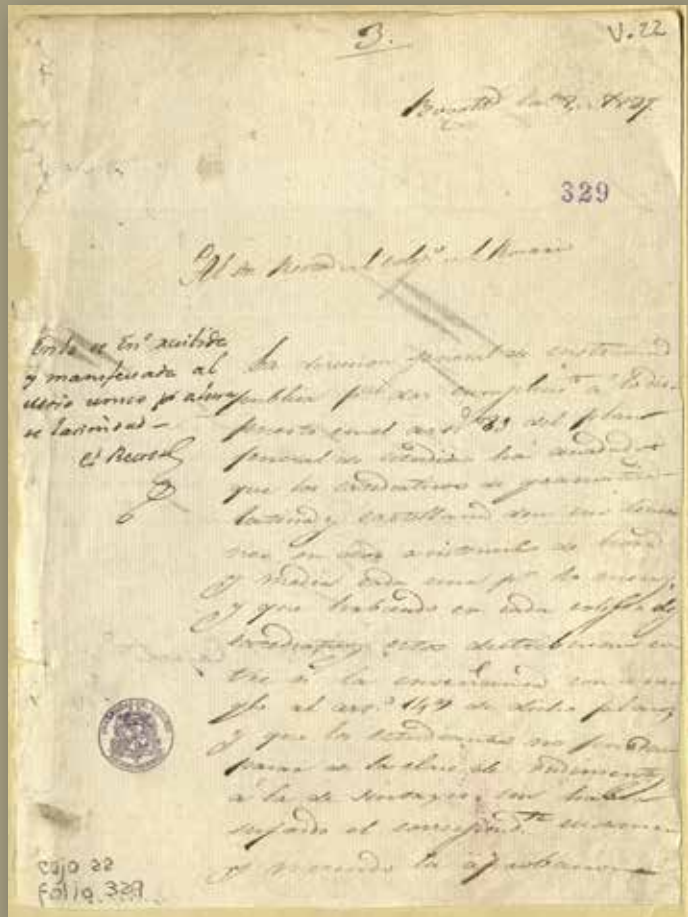 3.
V. 22
Bogotá 1827
329
Al Sor Rector del colego del Rosario
Enlo de Eno recibida
y manifestada al
unico pr ahora
de latinidad —
El Rector
La direccion general de instruccion
publica pa dar cumplimto a lo dis-
puesto en el arto 33 del plan
general de estudios ha acordado
que los catedraticos de gramatica
latina y castellana den sus leccio-
nes en dos asistencias de hora
y media cada una pr lo menos,
y que habiendo en cada colegio dos
catedraticos, estos distribuian en-
tre si la enseñanza con arre-
glo al arto 149 de dicho plan,
y que los estudiantes no puedan
pasar de la clase de rudimentos
a la de sintaxis, sin haber
sufrido el correspondte examen
y merecido la aprobacion
Caja 22
folio 329